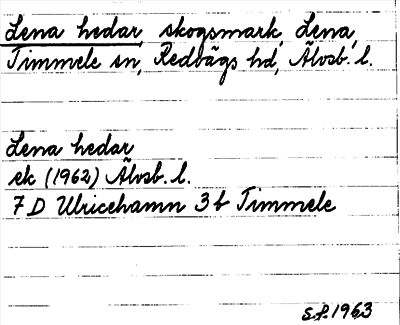 Lena hedar, skogsmark, Lena,
Timmele sn, Redvägs hd, Älvsb. l.
Lena hedar
ek (1962) Älvsb. l.
7 D Ulricehamn 3 b Timmele
S.P. 1963